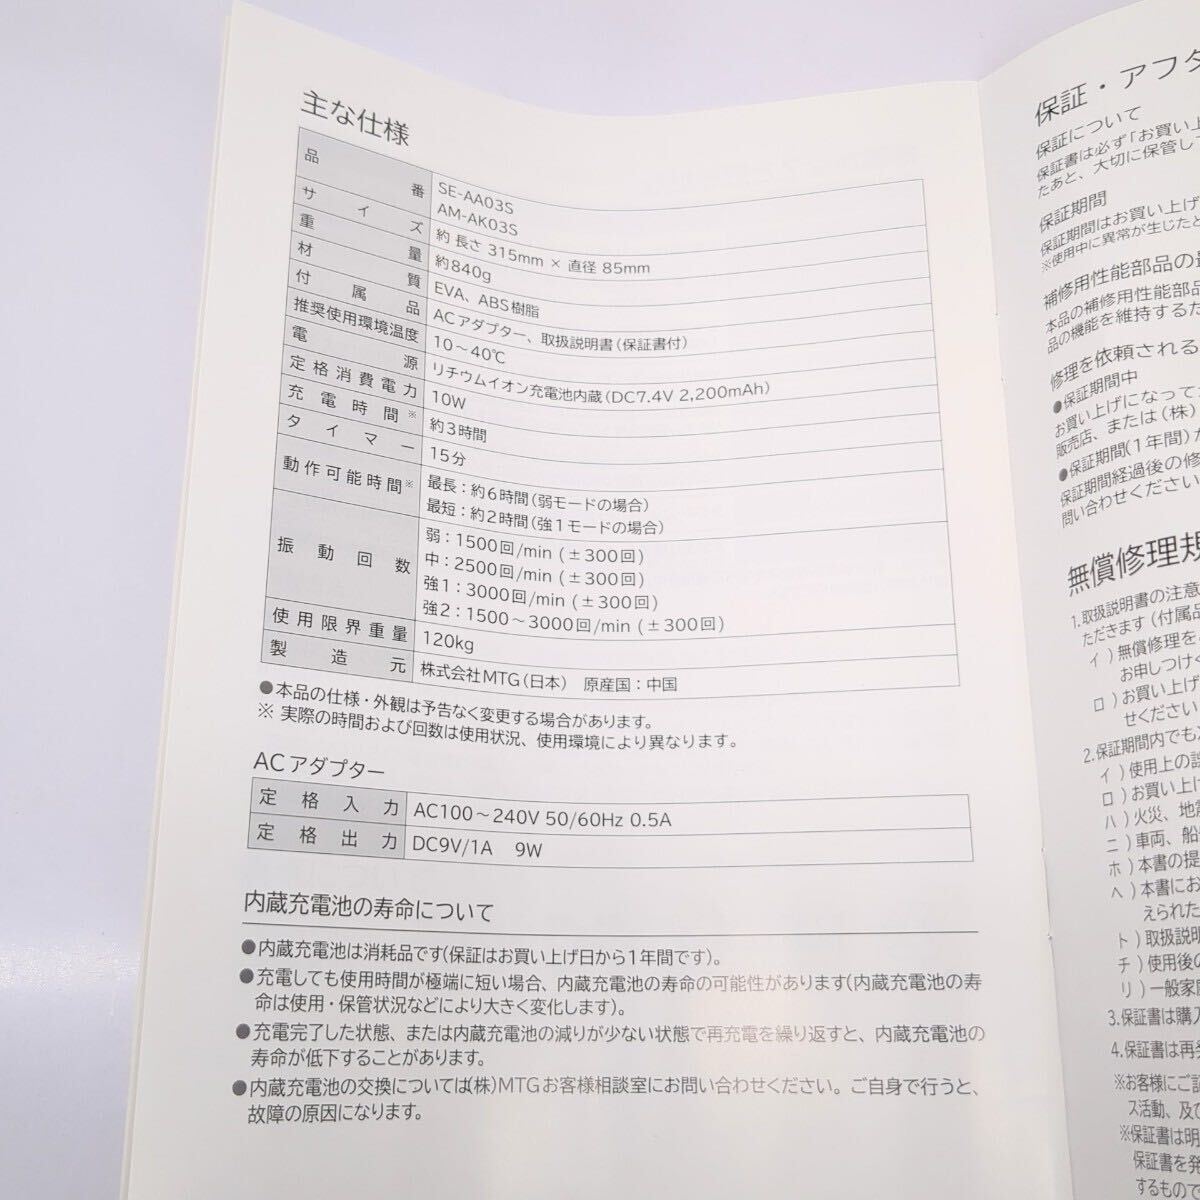 主な仕様
品番 SE-AA03S
AM-AK03S
サイズ 約 長さ 315mm × 直径 85mm
重量 約840g
材質 EVA、ABS樹脂
付属品 ACアダプター、取扱説明書(保証書付)
推奨使用環境温度 10～40℃
電源 リチウムイオン充電池内蔵(DC7.4V 2,200mAh)
定格消費電力 10W
充電時間※ 約3時間
タイマー 15分
動作可能時間※ 最長：約6時間(弱モードの場合)
最短：約2時間(強1モードの場合)
振動回数 弱：1500回/min (±300回)
中：2500回/min (±300回)
強1：3000回/min (±300回)
強2：1500～3000回/min (±300回)
使用限界重量 120kg
製造元 株式会社MTG(日本) 原産国：中国
●本品の仕様・外観は予告なく変更する場合があります。
※ 実際の時間および回数は使用状況、使用環境により異なります。
ACアダプター
定格入力 AC100～240V 50/60Hz 0.5A
定格出力 DC9V/1A 9W
内蔵充電池の寿命について
●内蔵充電池は消耗品です(保証はお買い上げ日から1年間です)。
●充電しても使用時間が極端に短い場合、内蔵充電池の寿命の可能性があります(内蔵充電池の寿
命は使用・保管状況などにより大きく変化します)。
●充電完了した状態、または内蔵充電池の減りが少ない状態で再充電を繰り返すと、内蔵充電池の
寿命が低下することがあります。
●内蔵充電池の交換については(株)MTGお客様相談室にお問い合わせください。ご自身で行うと、
故障の原因になります。
保証・アフタ
保証について
保証書は必ず「お買い上
たあと、大切に保管し
保証期間
保証期間はお買い上げ
※使用中に異常が生じたと
補修用性能部品の最
本品の補修用性能部品
品の機能を維持するた
修理を依頼される
●保証期間中
お買い上げになって
販売店、または(株)
●保証期間(1年間)が
保証期間経過後の修
問い合わせください
無償修理規
1.取扱説明書の注意
ただきます(付属品
イ)無償修理を
お申しつけく
ロ)お買い上げ
せください
2.保証期間内でも
イ)使用上の誤
ロ)お買い上げ
ハ)火災、地震
ニ)車両、船
ホ)本書の提
ヘ)本書にお
えられた
ト)取扱説明
チ)使用後の
リ)一般家庭
3.保証書は購入
4.保証書は再発
※お客様にご記
ス活動、及び
※保証書は明
保証書を発
するもので